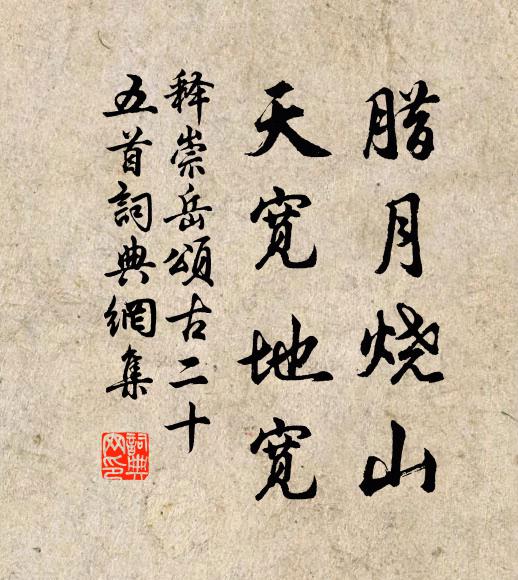 腊月烧山
天宽地宽
释崇岳頌古二十
五首詞典網集
詞典
网印